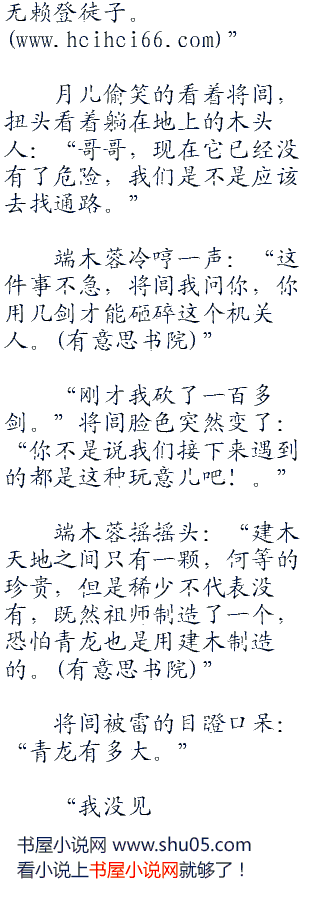 无赖登徒子。
(www.hcihci66.com)”
月儿偷笑的看着将闾，
扭头看着躺在地上的木头
人：“哥哥，现在它已经没
有了危险，我们是不是应该
去找通路。”
端木蓉冷哼一声：“这
件事不急，将闾我问你，你
用几剑才能砸碎这个机关
人。(有意思书院)”
“刚才我砍了一百多
剑。”将闾脸色突然变了：
“你不是说我们接下来遇到
的都是这种玩意儿吧！。”
端木蓉摇摇头：“建木
天地之间只有一颗，何等的
珍贵，但是稀少不代表没
有，既然祖师制造了一个，
恐怕青龙也是用建木制造
的。(有意思书院)”
将闾被雷的目瞪口呆：
“青龙有多大。”
“我没见
书屋小说网 www.shu05.com
看小说上书屋小说网就够了！